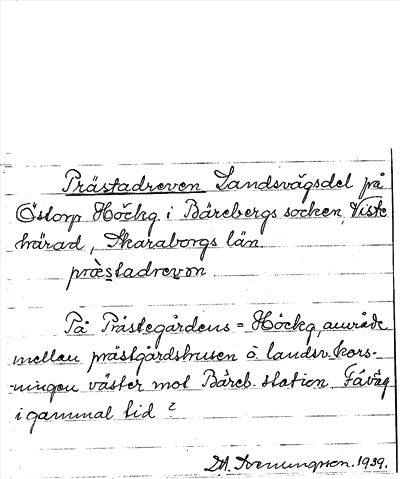 Prästadreven Landsvägsdel på
Östorp Höckg. i Bärebergs socken, Viste
härad, Skaraborgs län.
præstadrevon
På Prästegårdens = Höckg, område
mellan prästgårdshusen o. landsv.kors-
-ningen väster mot Bäreb. station. Fäväg
i gammal tid?
1939.